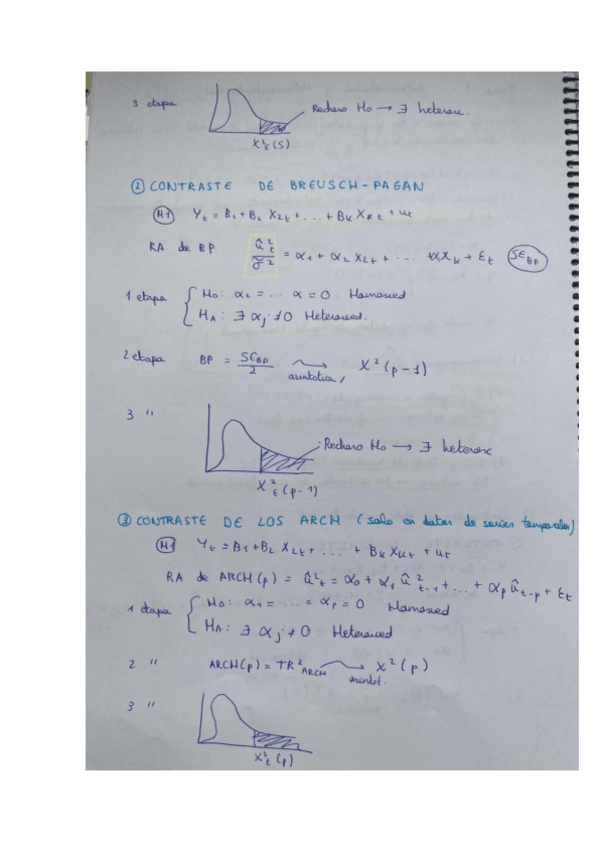 3 etapa
Rechazo H₀ → ∃ heterosc.
X²ε(5)
② CONTRASTE DE BREUSCH-PAGAN
M1 Yt = B1 + B2 X2t + ... + BK XKt + ut
RA de BP û²t / σ̃² = α1 + α2 X2t + ... + αkXk + Et SEBP
1 etapa { H₀: α2 = ... α = 0 Homosced
HA: ∃ αj ≠ 0 Heterosced.
2 etapa BP = SEBP / 2 asintótica X²(p-1)
3 "
Rechazo H₀ → ∃ heterosc
X²ε(p-1)
③ CONTRASTE DE LOS ARCH (solo en datos de series temporales)
M1 Yt = B1 + B2 X2t + ... + BK XKt + ut
RA de ARCH(p) = û²t = α0 + α1 û²t-1 + ... + αp û²t-p + Et
1 etapa { H₀: α1 = ... = αp = 0 Homosced
HA: ∃ αj ≠ 0 Heterosced
2 " ARCH(p) = TR²ARCH asintot. X²(p)
3 "
X²ε(p)